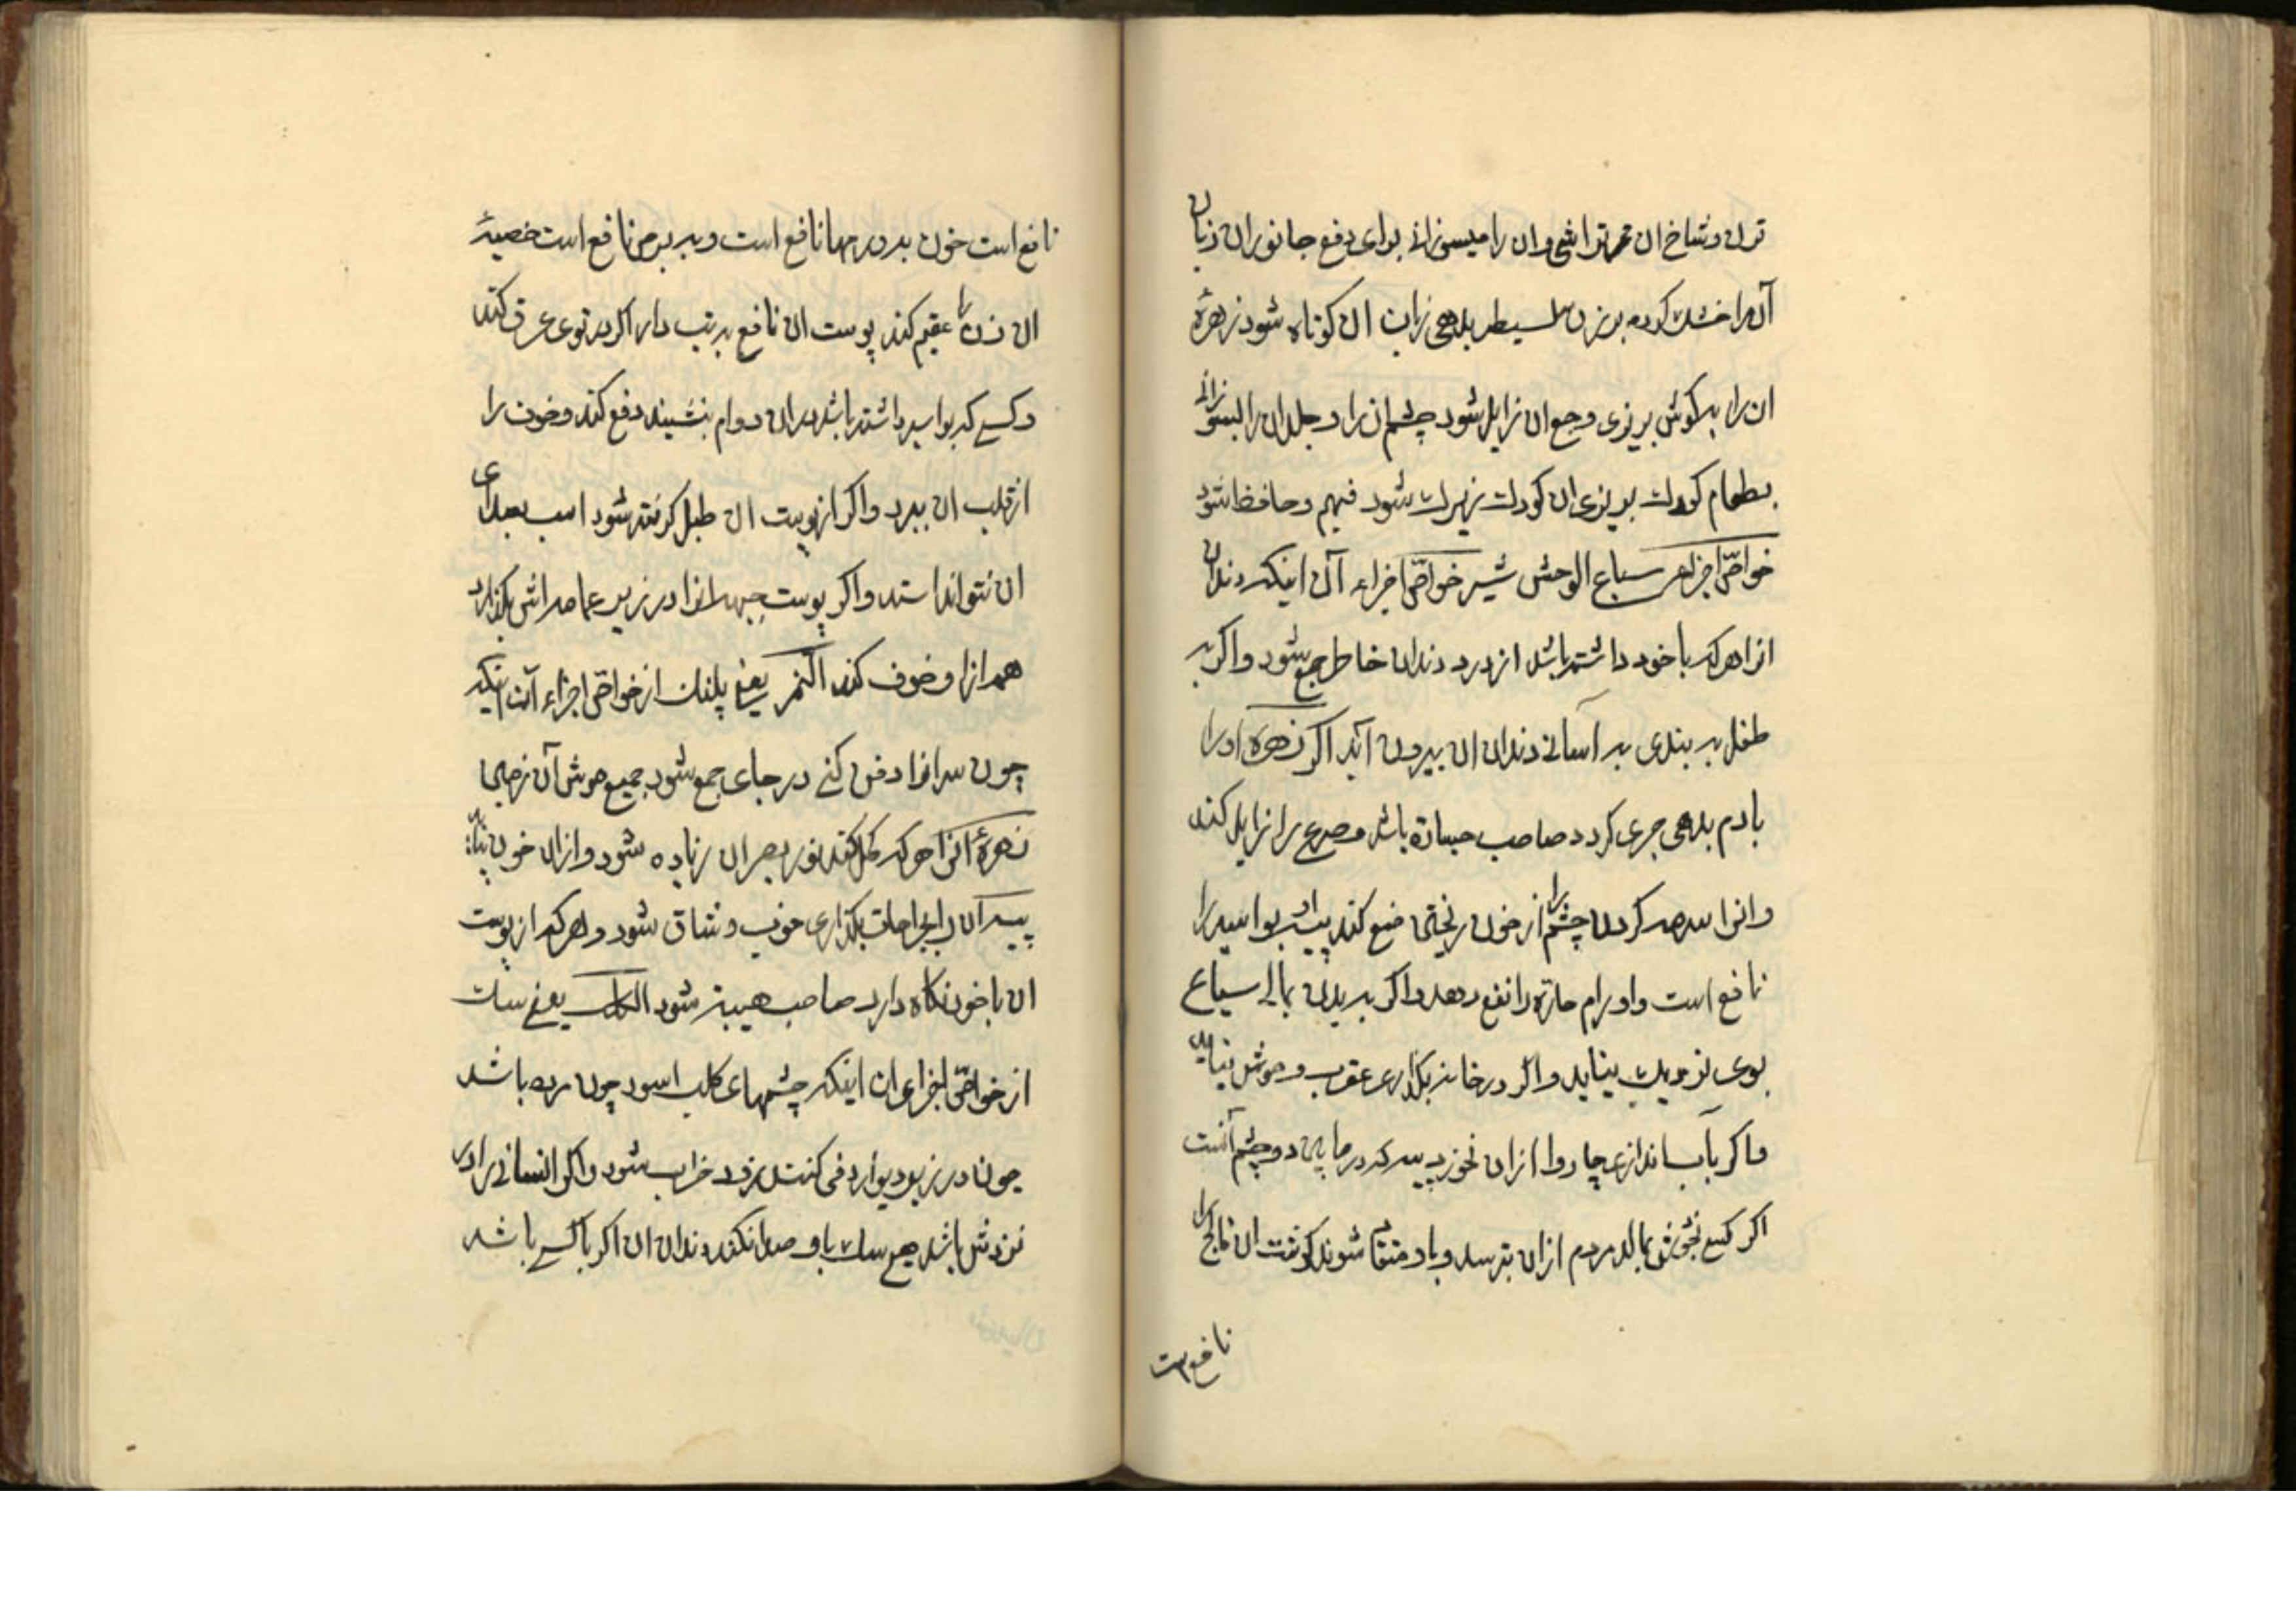 ترك و شاخ ان تراشی وان را میسوزانی برای دفع جانوران زبان
آنرا خشك کرده بر زن سلیطه بدهی زبان ان کوتاه شود زهرهٔ
ان را به کوش بریزی وجع ان زایل شود چشم ان را و جلد ان را بسوزانی
بطعام کودك بریزی ان کودك زیرك شود فهیم و حافظ شود
خواصّ اجزاء سباع الوحش شیر خواصّ اجزاء آن اینکه دندان
انرا هر که با خود داشته باشد از درد دندان خاطر جمع شود واکر به
طفل به بندی به آسانی دندان ان بیرون آید اکر زهرهٔ اورا
بادم بدهی جری کردد صاحب جسارة باشد و صرع را زایل کند
وانرا سرمه کردن چشم را از خون ریختن منع کند پیه او بواسیر را
نافع است و اورام حارّه را نفع دهد واکر به بدن بمالی سباع
بوی نزدیك نیاید واکر در خانه بکذاری عقرب و موش نیاید
واکر بآب اندازی چاروا ازان نخورد پیه که در مابین دو چشم آنست
اکر کسی بخودش بمالد مردم ازان بترسد و باو منقاد شوند کوشت ان فالج را
نافع است
نافع است خون به ورمها نافع است و به برص نافع است خصیهٔ
ان زن را عقیم کند پوست ان نافع به تب دار اکر در توی عرق کند
و کسی که بواسیر داشته باشد در ان دوام بنشیند دفع کند و خون را
از قلب ان ببرد واکر از پوست ان طبل کرفته شود اسب بصدای
ان نتواند استد واکر پوست جبهه انرا در زیر عمامه اش بکذارد
همه ازاو خوف کند النمر یعنی پلنك از خواصّ اجزاء آن اینکه
چون سر انرا دفن کنی در جای جمع شود جمیع موش آن
زهرهٔ انرا هر که کحل کند نور بصر ان زیاده شود وازان خون نیاید
پیه آن را بجراحات بکذاری خوب و شاق شود و هر که از پوست
ان با خود نکاه دارد صاحب هیبة شود الکلب یعنی سك
از خواصّ اجزای ان اینکه چشمهای کلب اسود چون مرده باشد
چون در زیر دیوار دفن کنند بزودی خراب شود واکر انسانی را در
نزدش باشد هیچ سك باو صدا نکند دندان ان اکر با کسی باشد